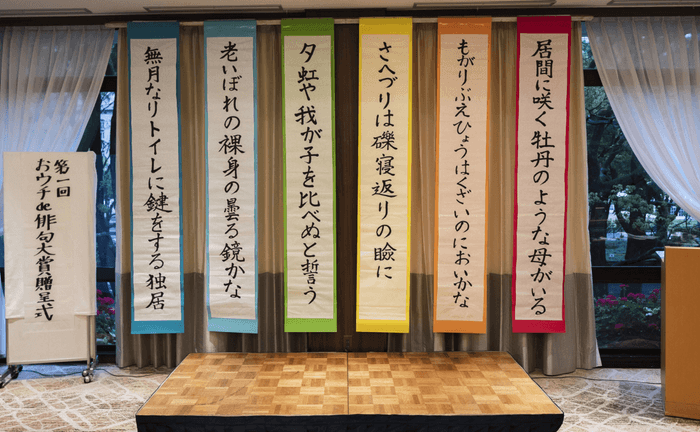 居間に咲く牡丹のような母がいる
もがりぶえひょうはくざいのにおいかな
さへづりは礫寝返りの瞼に
夕虹や我が子を比べぬと誓う
老いぼれの裸身の曇る鏡かな
無月なりトイレに鍵をする独居
第一回
おウチde俳句大賞贈呈式